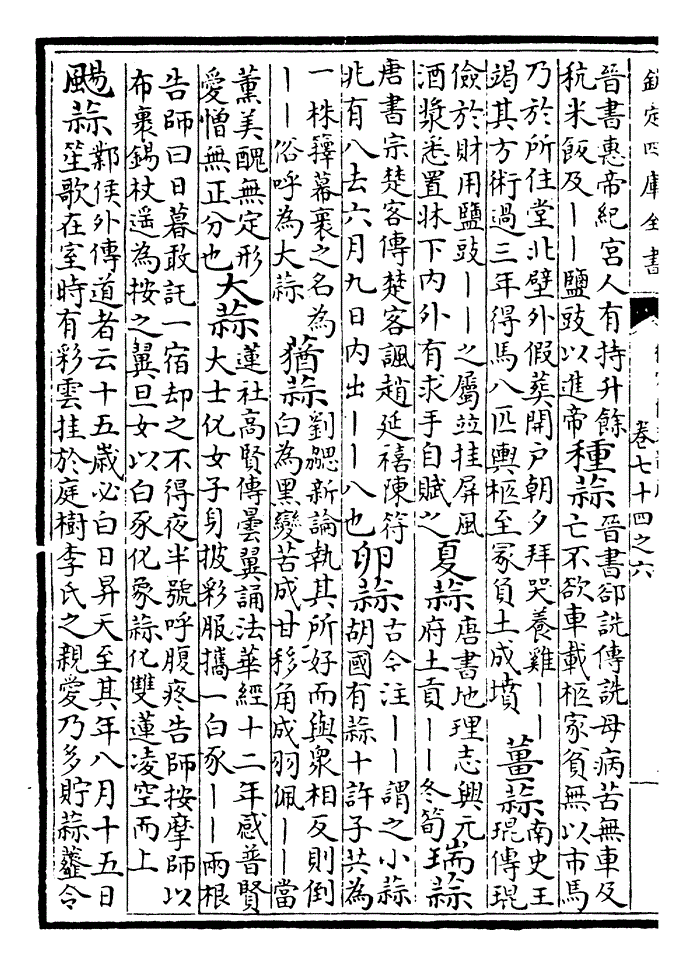 欽定四庫全書
卷七十四之六
晉書惠帝紀宮人有持升餘
秔米飯及丨丨鹽豉以進帝
種蒜
晉書郤詵傳詵母病苦無車及
亡不欲車載柩家貧無以市馬
乃於所住堂北壁外假葬開戶朝夕拜哭養雞丨丨
竭其方術過三年得馬八匹輿柩至冢負土成墳
薑蒜
南史王
琨傳琨
儉於財用鹽豉丨丨之屬竝挂屏風
酒漿悉置牀下內外有求手自賦之
夏蒜
唐書地理志興元
府土貢丨丨冬筍
瑞蒜
唐書宗楚客傳楚客諷趙延禧陳符
兆有八去六月九日內出丨丨八也
卵蒜
古今注丨丨謂之小蒜
胡國有蒜十許子共為
一株籜幕裹之名為
丨丨俗呼為大蒜
蕕蒜
劉勰新論執其所好而與衆相反則倒
白為黑變苦成甘移角成羽佩丨丨當
薰美醜無定形
愛憎無正分也
大蒜
蓮社高賢傳曇翼誦法華經十二年感普賢
大士化女子身披彩服攜一白豕丨丨兩根
告師曰日暮敢託一宿却之不得夜半號呼腹疼告師按摩師以
布裹錫杖遥為按之翼旦女以白豕化象蒜化雙蓮凌空而上
颺蒜
鄴侯外傳道者云十五歲必白日昇天至其年八月十五日
笙歌在室時有彩雲挂於庭樹李氏之親愛乃多貯蒜虀令